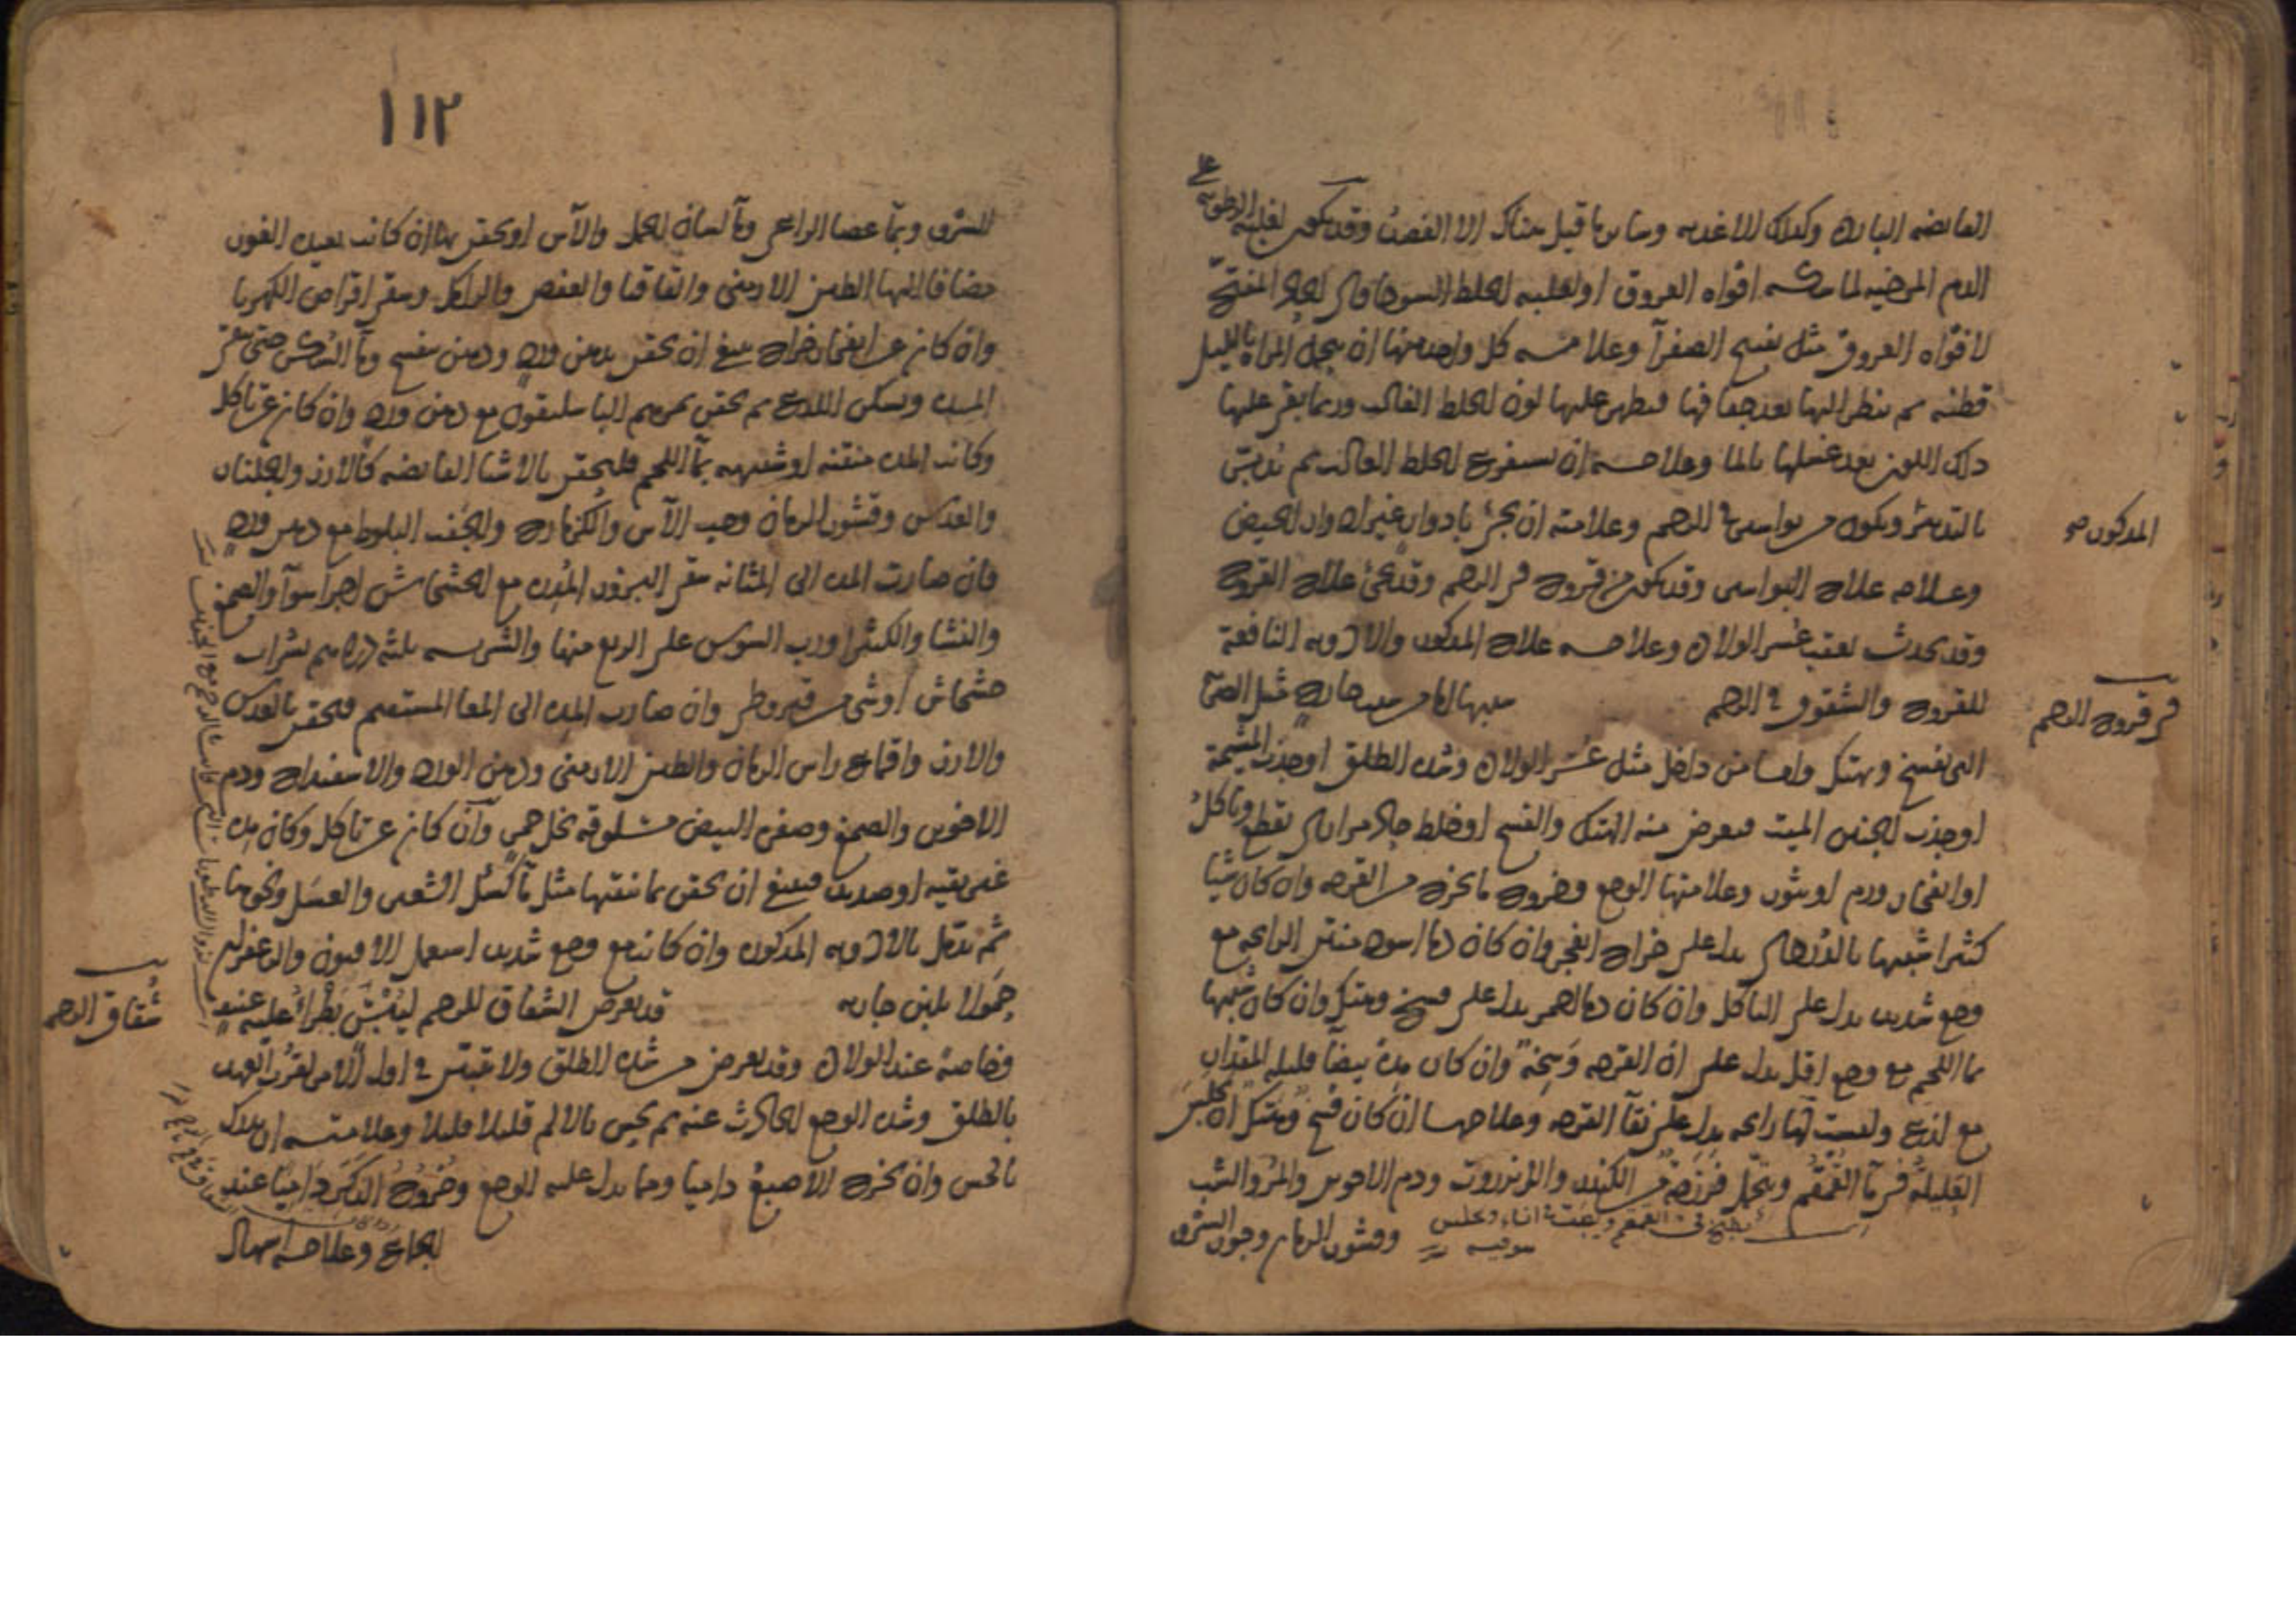 القابضه البارده وكذلك الاغذيه وسائر ما قيل هناك الا الفصد وقد يكون لغلبه الرطوبه على
الدم المرخيه لماسكه افواه العروق او لغلبه الخلط السوداوى الحاد المفتح
لافواه العروق مثل نضج الصفرآ وعلامه كل واحد منها ان تحمل المراه بالليل
قطنه ثم ينظر اليها بعد جفافها فيظهر عليها لون الخلط الغالب وربما بقى عليها
ذلك اللون بعد غسلها بالما وعلاجه ان يستفرغ الخلط الغالب ثم تدبر
بالتدبير ويكون من بواسير فى الرحم وعلامته ان يجرى بادوار غير ادوار الحيض
المذكور صح
وعلاجه علاج البواسير وقد يكون من قروح فى الرحم وقد يجئ علاج القروح
وقد يحدث بعقب عسر الولاده وعلاجه علاج المذكور والادويه النافعه
للقروح والشقوق فى الرحم سببها اما من سبب خارج مثل الضربه
فى قروح الرحم
التى تفسخ وتهتك واما من داخل مثل عُسر الولاده وشده الطلق او جذب المشيمة
او جذب الجنين الميت فيعرض منه الهتك والفسخ او خلط حاد مرارى يقطع وياكل
او انفجار ورم او بثور وعلامتها الوجع وخروج ما يخرج من القرحه وان كان شيا
كثيرا شبيها بالدردى يدل على خراج انفجر وان كان دما اسود منتن الرايحه مع
وجع شديد يدل على التاكل وان كان دما احمر يدل على فسخ وهتك وان كان شبيها
بما اللحم مع وجع اقل يدل على ان القرحه وَسِخة وان كان مِدةً بيضآ قليله المقدار
مع لذع وليست لها رايحه يدل على نقآ القرحه وعلاجها ان كان فسخ وهتك ان تجلس
العَليلة فى مآ القُمقُم وتحمل فرزجة من الكندر والانزروت ودم الاخوين والمر والشب
وقشور الرمان وجوز السرو
يطبخ فى القمقم ويصب فى اناء ويجلس
فيه
١١٢
للسرو وبمآ عصا الراعى ومآ لسان الحمل والآس او يحقن بها ان كانت بعيده الغور
مضافا اليها الطين الارمنى والقاقيا والعفص والرامك وتسقى اقراص الكهربا
وان كان عن انفجار خراج ينبغى ان يحقن بدهن ورد ودهن بنفسج ومآ السكر حتى تنقى
المده ويسكن اللذع ثم يحقن بمرهم الباسليقون مع دهن ورد وان كان عن تاكل
وكانت المده منتنه او شبيهه بمآ اللحم فليحقن بالاشيا القابضه كالارز والجلنار
والعدس وقشور الرمان وحب الآس والكزمازج والجفت البلوط مع دهن ورد
فان صارت المده الى المثانه سقى البزور المدره مع الخشخاش اجزا سوآ والصمغ
والنشا والكثيرا ورب السوس على الربع منها والشربه ثلثه دراهم بشراب
خشخاش او شى من قيروطى وان صارت المده الى المعا المستقيم فيحقن بالعدس
والارز واقماع راس الرمان والطين الارمنى ودهن الورد والاسفيداج ودم
الاخوين والصمغ وصفره البيض مسلوقه بخل خمر وآن كان عن تاكل وكان مده
غير نقيه او صديد فينبغى ان يحقن بما ينقيها مثل مآ كَشك الشعير والعسَل ونحوها
ثم تدمل بالادويه المذكوره وان كانت مع وجع شديد استعمل الافيون والزعفران
حمولا بلبن جاريه قد يعرض الشقاق للرحم ليُبْسٍ يَطْرأُ عليه عنيف
شُقاق الرحم
وخاصة عند الولاده وقد يعرض من شده الطلق ولا يتبين فى اول الامر لقرب العهد
بالطلق وشده الوجع الحادث عنه ثم يحس بالالم قليلا قليلا وعلامته ان يدرك
بالحس وان يخرج الاصبع داميا ومما يدل عليه الوجع وخُروج الذكَر دامِيًا عند
الجماع وعلاجه اسهال